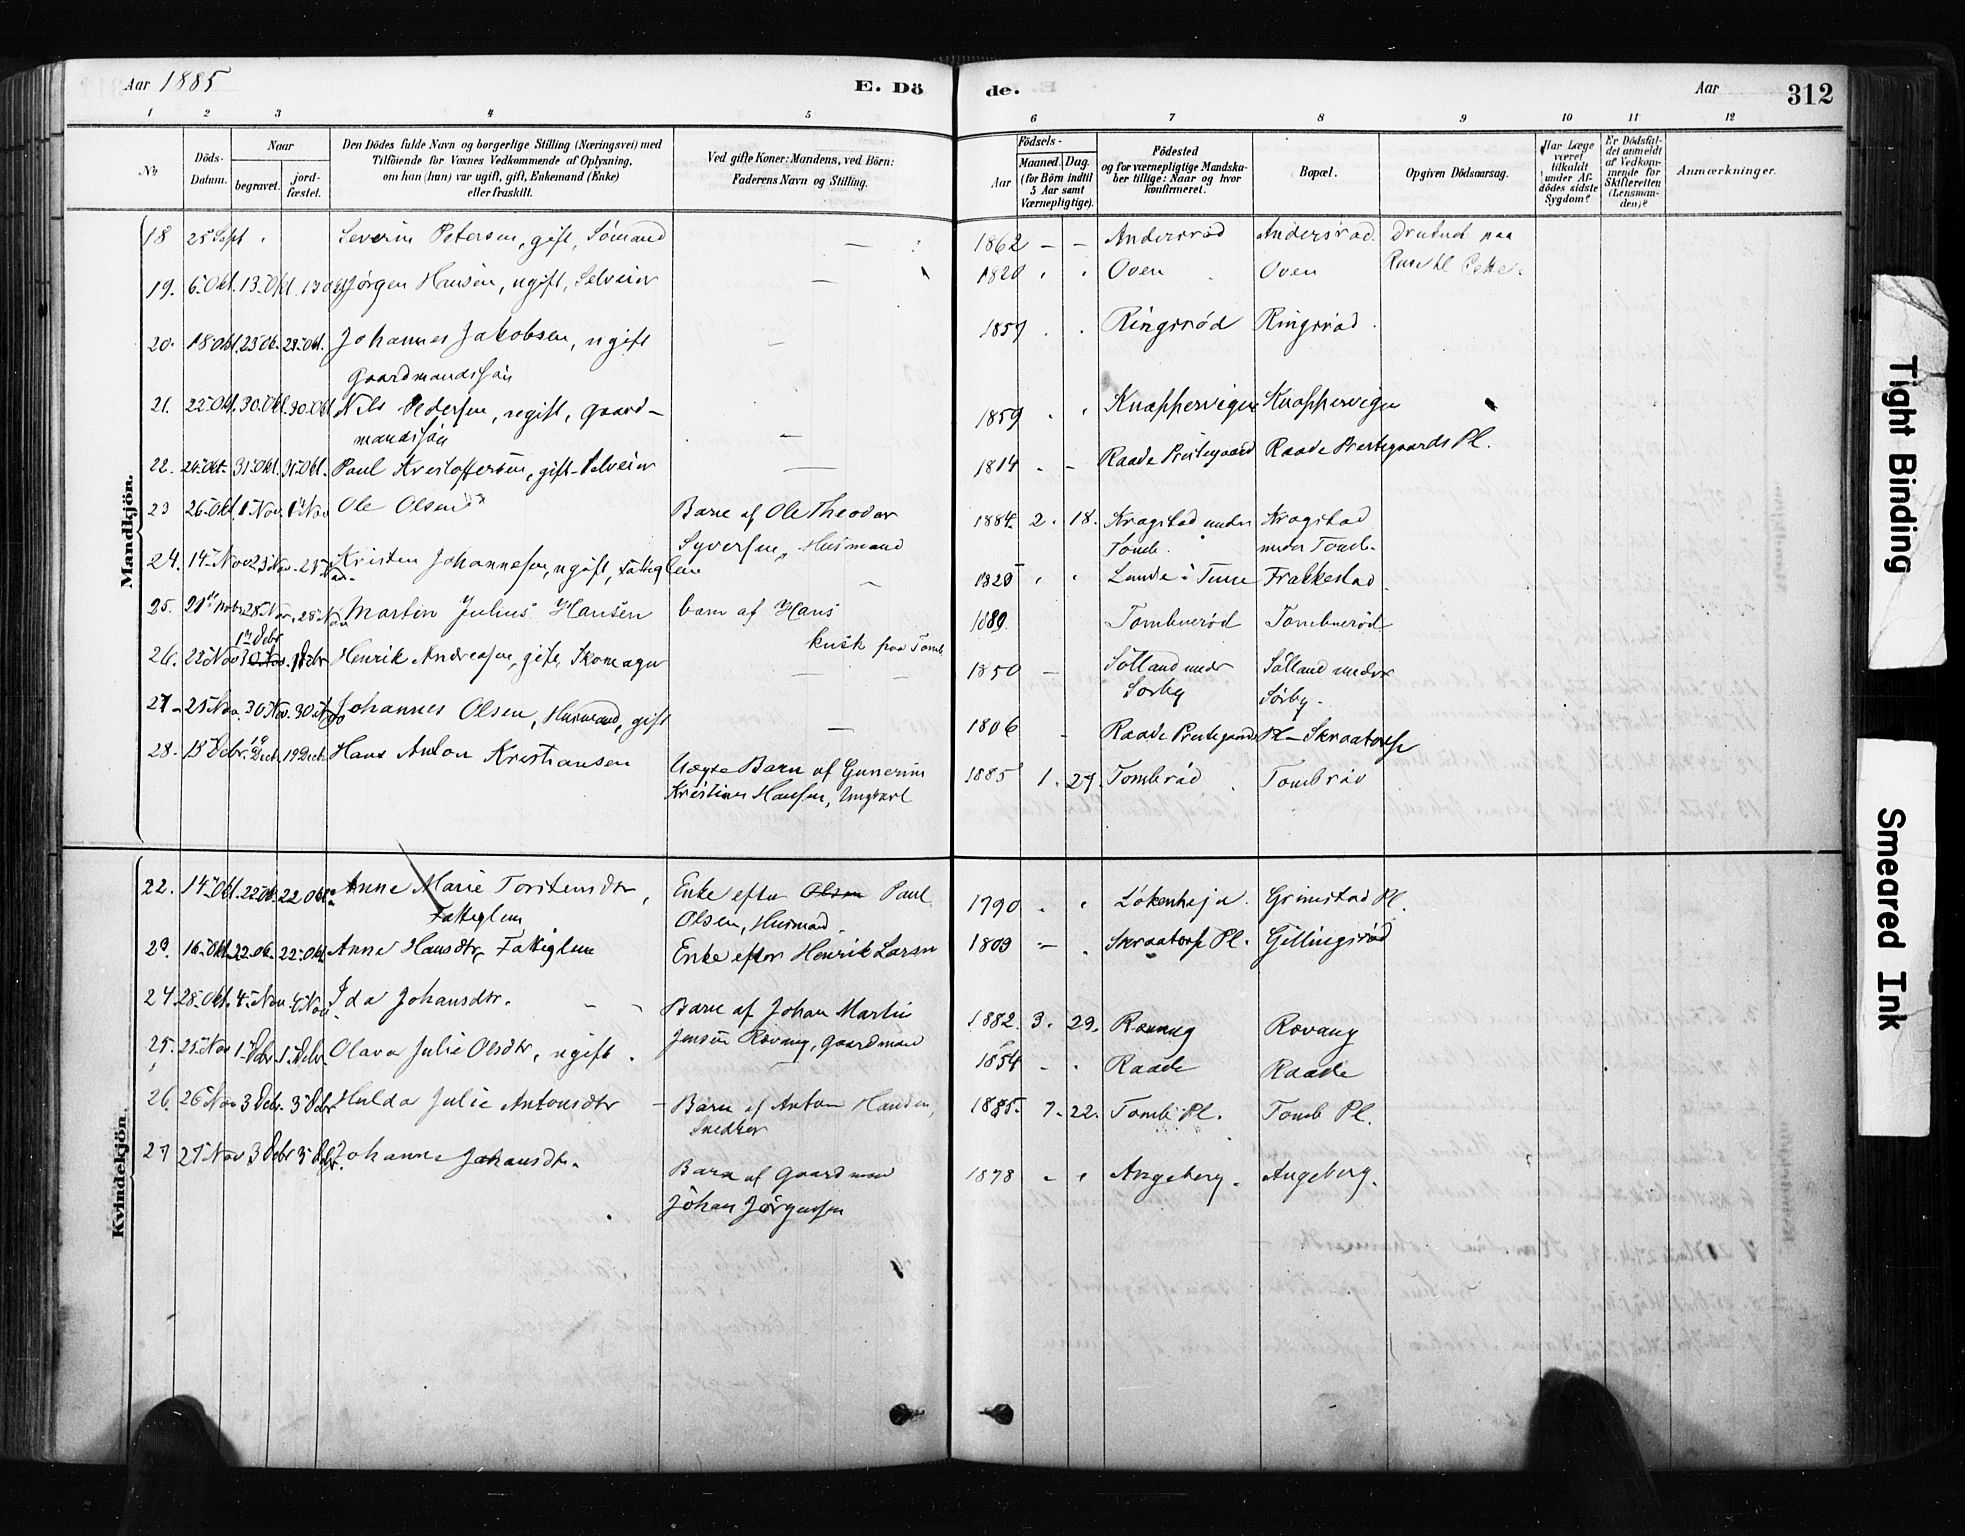 Aar 1885
E. Dö
de.
Aar
312
1 2 3 4 5
6 7 8 9 10 11 12
No
Döds-Datum.
Naar
begravet.
jord-fæstet.
Den Dödes fulde Navn og borgerlige Stilling (Næringsvei) med
Tilföiende for Voxnes Vedkommende af Oplysning,
om han (hun) var ugift, gift, Enkemand (Enke)
eller fraskilt.
Ved gifte Koner: Mandens, ved Börn:
Faderens Navn og Stilling.
Födsels-
Aar
Maaned. Dag.
(for Börn indtil
5 Aar samt
Værnepligtige).
Födested
og for værnepligtige Mandska-
ber tillige: Naar og hvor
konfirmeret.
Bopæl.
Opgiven Dödsaarsag.
Har Læge
været
tilkaldt
under Af-
dödes sidste
Sygdom?
Er Dödsfal-
det anmeldt
af Vedkom-
mende for
Skifteretten
(Lensman-
den)?
Anmærkninger.
Mandkjön.
18 25 Sept Severin Petersen, gift, Sömand — 1862 — — Andersröd Andersrød. Druknet paa
19. 6. Okt. 13. Okt. 13 Okt Jørgen Hansen, ugift, Selveier — 1820 Oven Oven
20. 18 Okt. 23 Ok. 23. Okt. Johannes Jakobsen, ugift — 1857 Ringsrød Ringsrød.
Gaardmandssön
21. 22. Okt. 30. Okt. 30. Okt Nils Pedersen, ugift, Gaard-
mandssön — 1859 Knappervigen Knappervigen
22. 24. Okt. 31. Okt. 31. Okt. Paul Kristoffersen, gift Selveier — 1814 Raade Prestegaard Raade Prestegaards Pl.
23 26. Okt. 1 Nov. 1 Nov Ole Olsen Barn af Ole Theodor
Syversen, Husmand 1884 2. 18. Kragstad under Tomb. Kragstad under Tomb.
24. 14. Nov 25 Nov. 25 Nov. Kristen Johannesen, ugift, Fattiglem — 1825 Lunde i Tune Frakkestad
25. 21 Nobr. 28. Nov. 28 Nov Martin Julius Hansen barn af Hans
kusk paa Tomb. Tombuerød Tombuerød
26. 22 Nov 1 Debr 1 Debr Henrik Andreasen, gift, Skomager — 1850 — Sölland under Sørby Sölland under Sörby.
27 25 Nov. 30 Nov. 30 Nov Johannes Olsen, Husmand, gift — 1806 Raade Prestegaard Pl. Skraatorp
28. 13 Debr. 19 Dech. 19 Dech. Hans Anton Kristiansen Uægte Barn af Gunerius
Kristian Hansen, Ungkarl 1885 1. 27. Tombrød Tombrød
Kvindekjön.
22. 14. Okt. 22. Ok. 22 Okt. Anne Marie Torstensdtr,
Fattiglem Enke efter Olsen Paul
Olsen, Husmand. 1790 Løkenhaja. Grimstad Pl.
23. 16. Okt 22. Ok. 22. Okt Anne Hansdtr, Fattiglem Enke efter Henrik Larsen 1803 — Skraatorp Pl. Gillingsrød
24. 28. Okt. 4. Nov. 4 Nov. Ida Johansdtr. Barn af Johan Martin
Jensen Rovang, Gaardmand 1882. 3. 29. Rovang Rovang
25. 25. Nov 1. Debr 1. Debr. Olava Julie Olsdtr, ugift. 1854 Raade Raade
26. 26 Nov 3 Debr. 3 Debr Hulda Julie Antonsdtr — Barn af Anton Hansen,
Snedker 1885. 7. 22. Tomb Pl. Tomb Pl.
27 27 Nov 3 Debr 3 Debr. Johanne Johansdtr. Barn af Gaardmand
Johan Jørgensen 1878 Angeberg. Angeberg.
Tight Binding
Smeared Ink